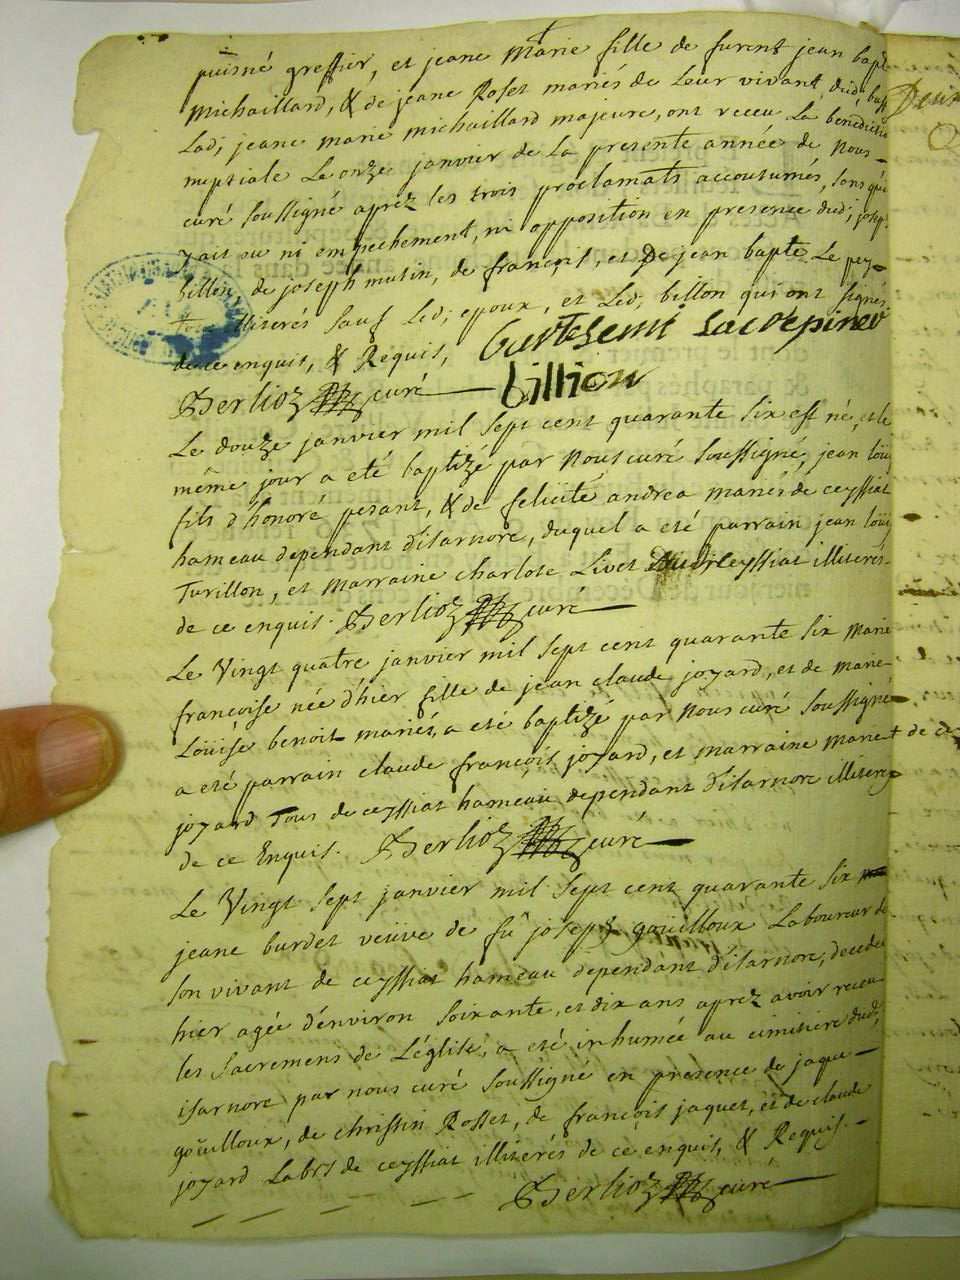 puisné greffier, et jeane Marie fille de furent jean bapt
Michaillard, & de jeane Roset mariés de Leur vivant dud;
Lad; jeane marie michaillard majeure, ont receu La benedictio
nuptiale Le onze janvier de La presente année de Nous
curé soussigné aprez les trois proclamats accoutumés, sans qu'il
y ait eu ni empechement, ni opposition en presence dud; joseph
billon de joseph mutin, de françois, et De jean bapte Le pey
tous illiterés sauf Led; epoux, et Led; billon qui ont signés
de ce enquis, & Requis,
billion
Berlioz curé
Le douze janvier mil sept cent quarante six est né, et le
même jour a eté baptizé par Nous curé soussigné, jean loüis
fils d'honoré pesant, & de felicité andrea mariés de ceyssiat
hameau dependant d'isarnore, duquel a eté parrain jean loüis
Turillon, et marraine charlote Livet dud; ceyssiat illiterés
de ce enquis. Berlioz curé
Le Vingt quatre janvier mil sept cent quarante six Marie
françoise née d'hier fille de jean claude joyard, et de marie
Loüise benoit mariés, a eté baptizé par Nous curé soussigné
a eté parrain claude françois joyard, et marraine marie
joyard Tous de ceyssiat hameau dependant d'isarnore illiterez
de ce Enquis. Berlioz curé
Le Vingt sept janvier mil sept cent quarante six
jeane burdet veuve de fû joseph goüilloux Laboureur de
son vivant de ceyssiat hameau dependant d'isarnore, decedée
hier agée d'environ soixante, et dix ans aprez avoir receu
les sacremens de L'église, a eté inhumée au cimitiere dud;
isarnore par nous curé soussigné en presence de jaque
goüilloux, de christin Rosset, de françois jaquet, et de claude
joyard Labrs de ceyssiat illiterés de ce enquis, & Requis.
Berlioz curé